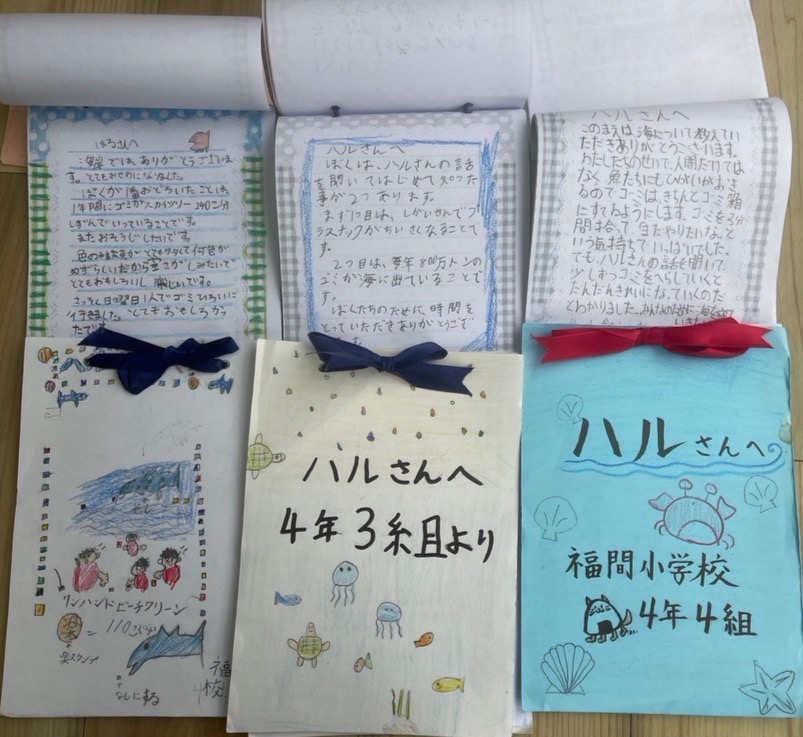 はるさんへ
では、ありがとうございま
す。とてもおせわになりました。
ぼくが一番おどろいたことは、
1年間にゴミがスカイツリー240こ分
しずんでいっていることです。
またおそうじしたいです。
めずらしい
とてもおもしろいし 楽しいです。
さっそく日曜日1人でゴミひろいに
行きました。とてもおもしろかっ
たです
ハルさんへ
ぼくは、ハルさんの話
を聞いてはじめて知った
事が2つあります。
まず1つ目は、しがいせんでプ
ラスチックがちいさくなることで
す。
2つ目は、毎年800万トンの
ゴミが海に出ていることで
す。
ぼくたちのために、時間を
とっていただきありがとうござ
ます。
ハルさんへ
このまえは、海について教えてい
ただきありがとうございます。
わたしたちのせいで、人間だけでは
なく魚たちにもひがいがおき
るのでゴミは、きちんとゴミ箱
にすてるようにします。ゴミを3分
間拾って、まだやりたいな。とい
う気持ちでいっぱいでした。
でも、ハルさんの話を聞いて
少しずつゴミをへらしていくと
だんだんきれいになっていくのだ
とわかりました。みんなのために海を
ワンハンドビーチクリーン
楽 = 110
楽スタンプ
なしにする
福
校
ハルさんへ
4年3組より
ハルさんへ
福間小学校
4年4組